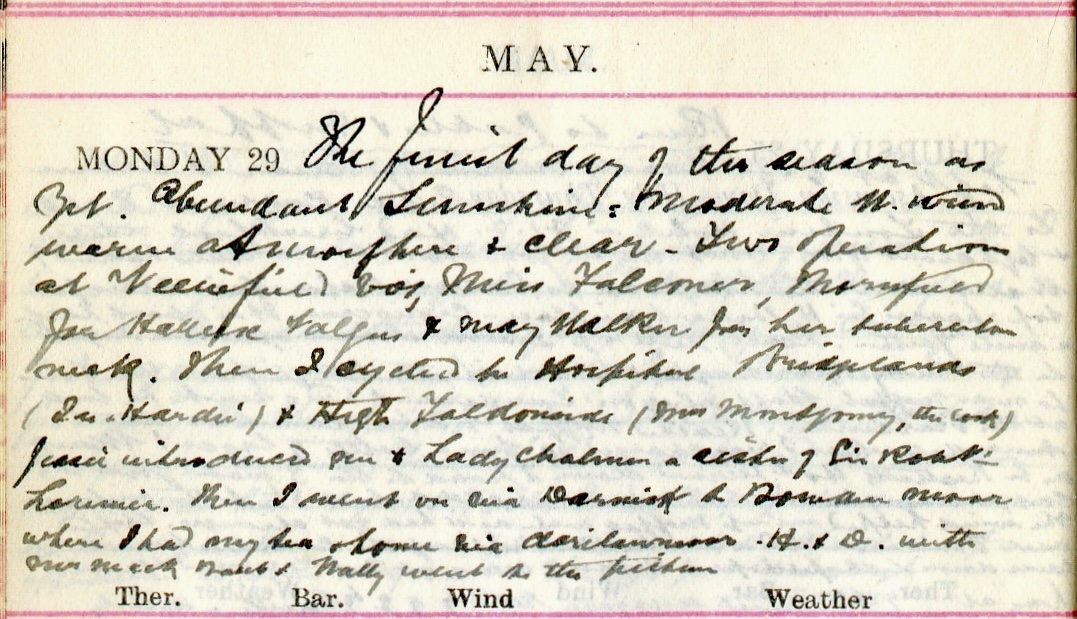 MAY.
MONDAY 29 The finest day of the season as
yet. Abundant Sunshine: Moderate N. wind
warm atmosphere & clear - Two operations
at viz, Miss Falconer,
for Hallux Valgus & May Walker for her tubercular
neck. Then I cycled to Hospital Priestlands
(Hardie) & High (Mrs Montgomery, the cook)
Jessie introduced me to Lady Chalmers a sister of Sir Robt
Lorimer. Then I went on via Darnick to Bowden Moor
where I had my tea & home via Cauldshiels. H. & D. with
Mrs & Wally went to the
Ther. Bar. Wind Weather